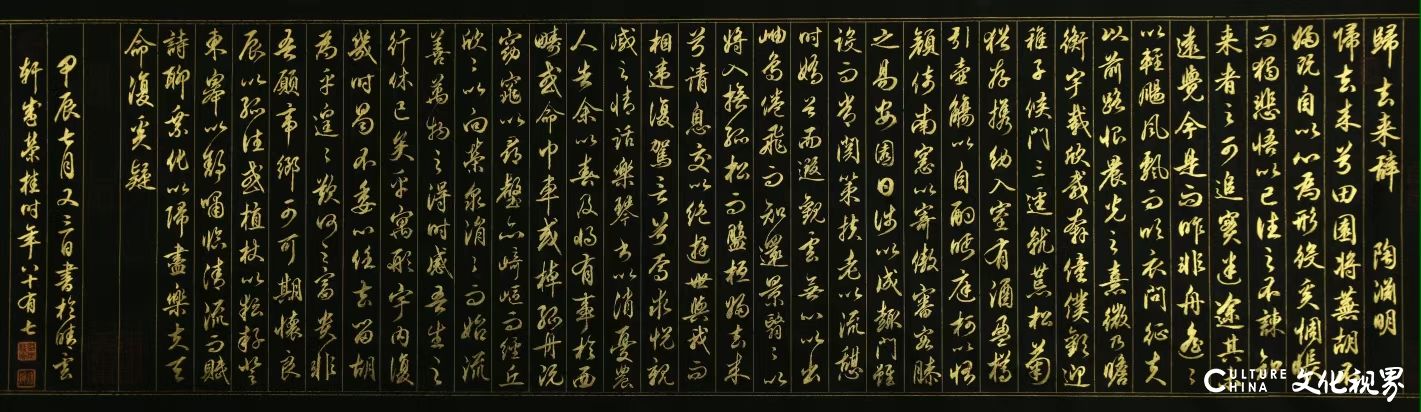 歸去来辭 陶渊明
歸去来兮田園将蕪胡不
歸既自以心為形役奚惆悵
而獨悲悟以已往之不諫知
来者之可追實迷途其
遠覺今是而昨非舟遥〻
以輕颺風飄而吹衣問征夫
以前路恨晨光之熹微乃瞻
衡宇載欣載奔僮僕歡迎
稚子候門三逕就荒松菊
猶存携幼入室有酒盈樽
引壺觴以自酌眄庭柯以怡
顔倚南窓以寄傲審容膝
之易安園日涉以成趣門雖
設而常関策扶老以流憩
时矯首而遐觀雲無心以出
岫鳥倦飛而知還景翳〻以
将入撫孤松而盤桓歸去来
兮請息交以絶遊世與我而
相違復駕言兮焉求悦親
戚之情話樂琴书以消憂農
人告余以春及将有事於西
疇或命巾車或棹孤舟既
窈窕以尋壑亦崎嶇而經丘
欣〻以向榮泉涓〻而始流
善萬物之得时感吾生之
行休已矣乎寓形宇内復
幾时曷不委心任去留胡
為乎遑〻欲何之富贵非
吾願帝鄉不可期懷良
辰以孤往或植杖以耘耔登
東皋以舒嘯临清流而賦
詩聊乘化以歸盡樂夫天
命復奚疑
甲辰七月又三日書於晴雲
轩 榮桂时年八十有七
CULTURE CHINA 文化视界